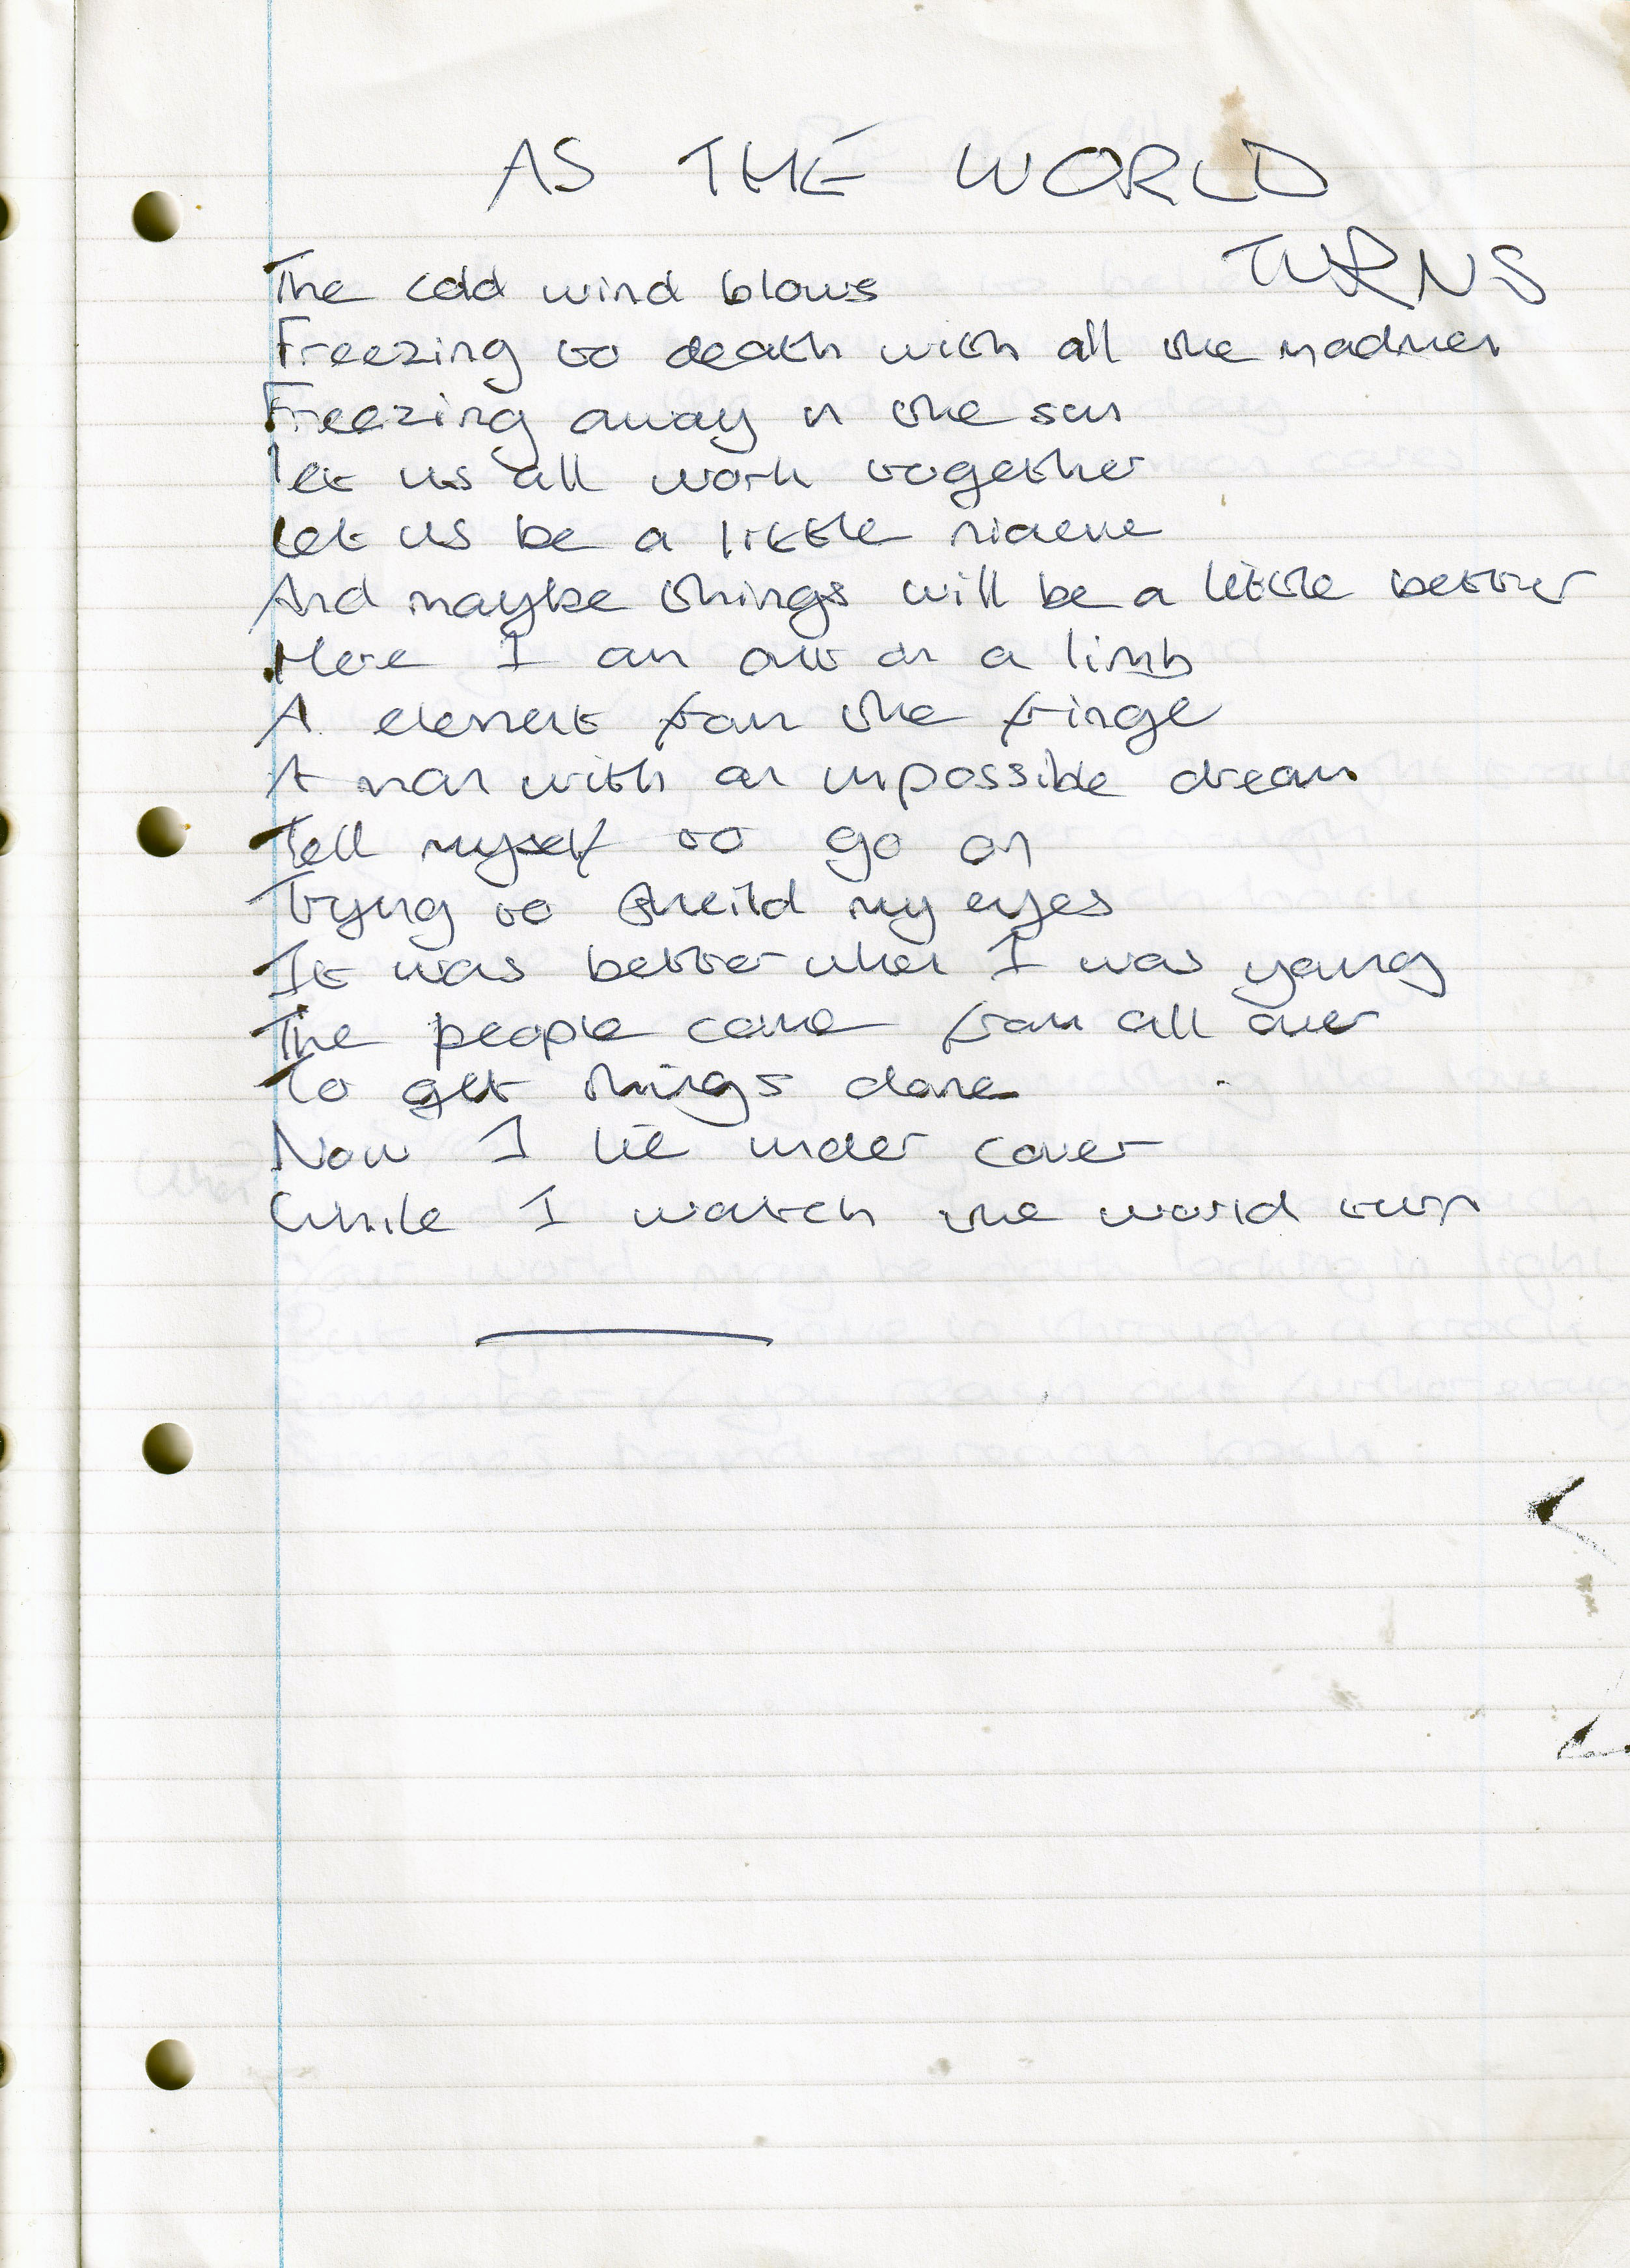 AS THE WORLD
TURNS
The cold wind blows
Freezing to death with all the madness
Freezing away in the sun
let us all work together
Let us be a little naieve
And maybe things will be a little better
Here I am out on a limb
A element from the fringe
A man with an impossible dream
Tell myself to go on
Trying to sheild my eyes
It was better when I was young
The people came from all over
To get things done
Now I lie under cover
While I watch the world turn